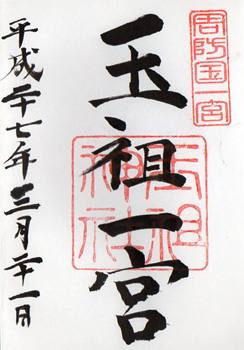 周防国一宮
玉祖一宮
玉祖神社
平成二十七年三月二十一日